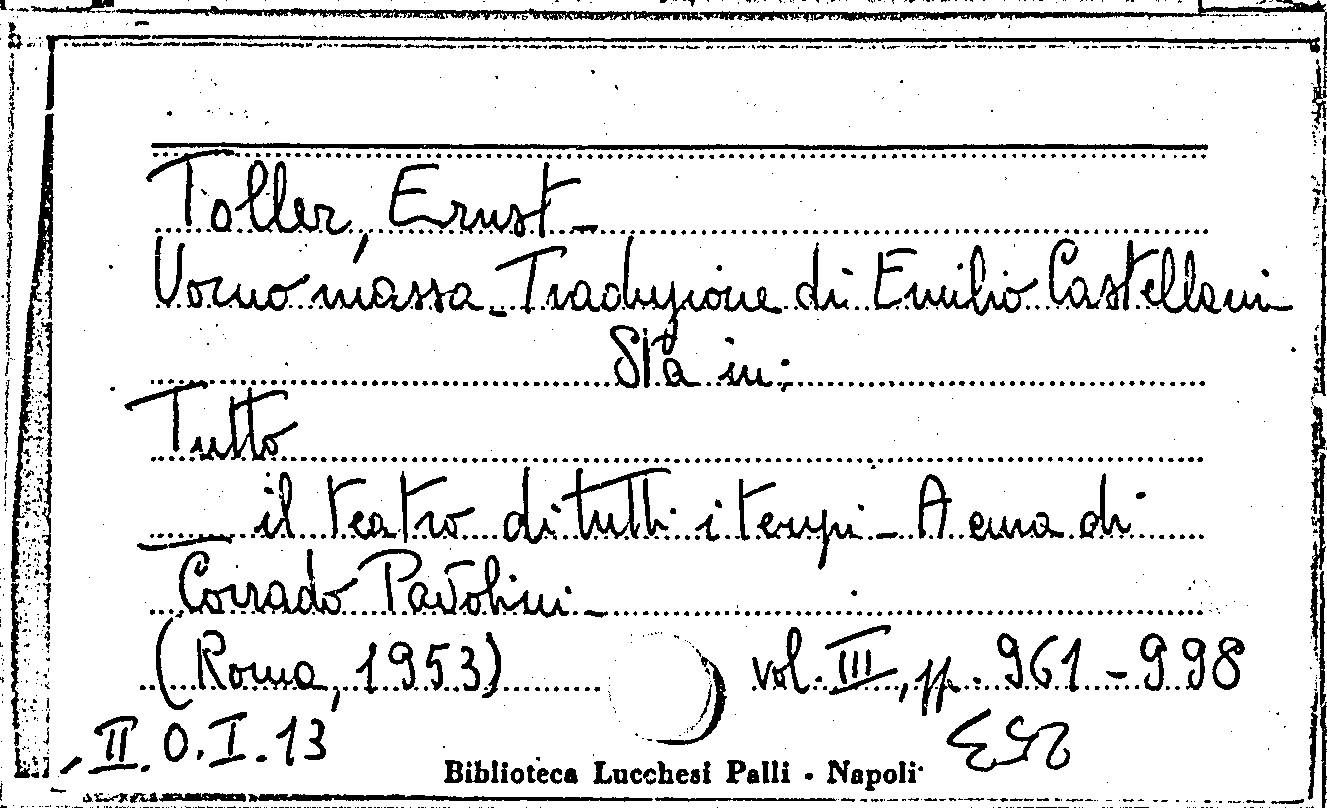 Toller, Ernst -
Uomo massa - Traduzione di Emilio Castellani
Sta in:
Tutto
il teatro di tutti i tempi - A cura di
Corrado Pavolini -
(Roma, 1953) vol. III, pp. 961-998
II. O. I. 13
Biblioteca Lucchesi Palli - Napoli